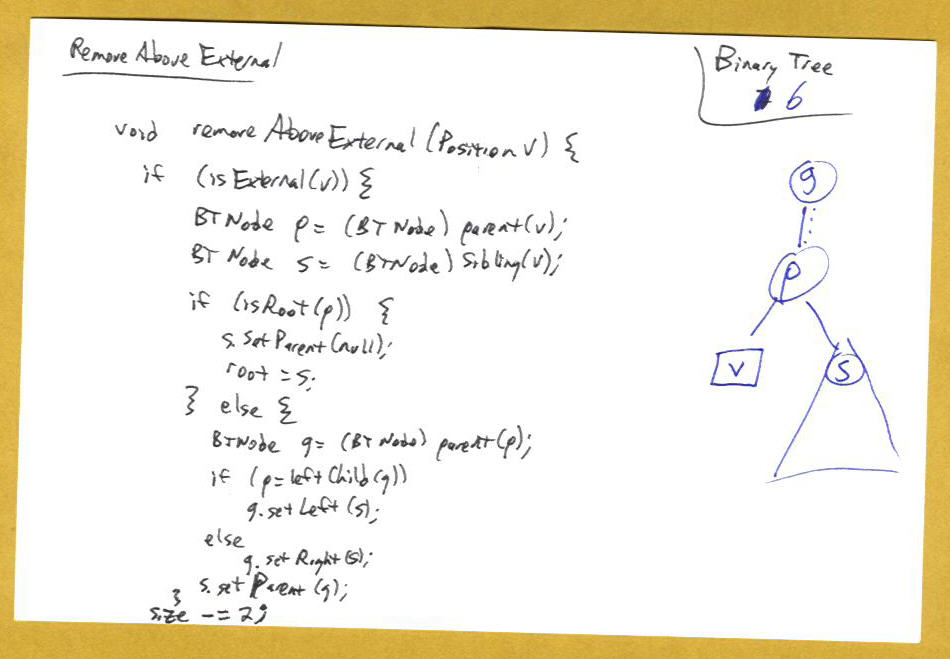 Remove Above External
Binary Tree
6
void removeAboveExternal (Position v) {
if (isExternal(v)) {
BTNode p = (BTNode) parent(v);
BTNode s = (BTNode) Sibling(v);
if (isRoot(p)) {
s.setParent(null);
root = s;
} else {
BTNode g = (BTNode) parent(p);
if (p=leftChild(g))
g.setLeft(s);
else
g.setRight(s);
s.setParent(g);
}
size -= 2;
g
p
v
s